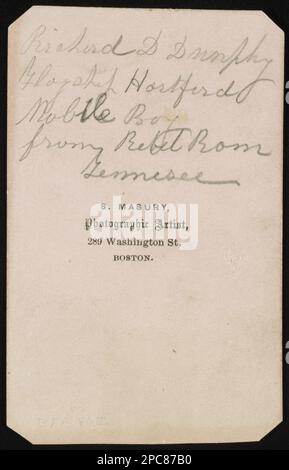 Richerd D Dunphy
Flagship Hortferd
Mobile Boy
from Rebel Rom
Tennesee
S. MASURY,
Photographic Artist,
289 Washington St.
BOSTON.
alamy
alamy
Image ID: 2PC87B0
www.alamy.com